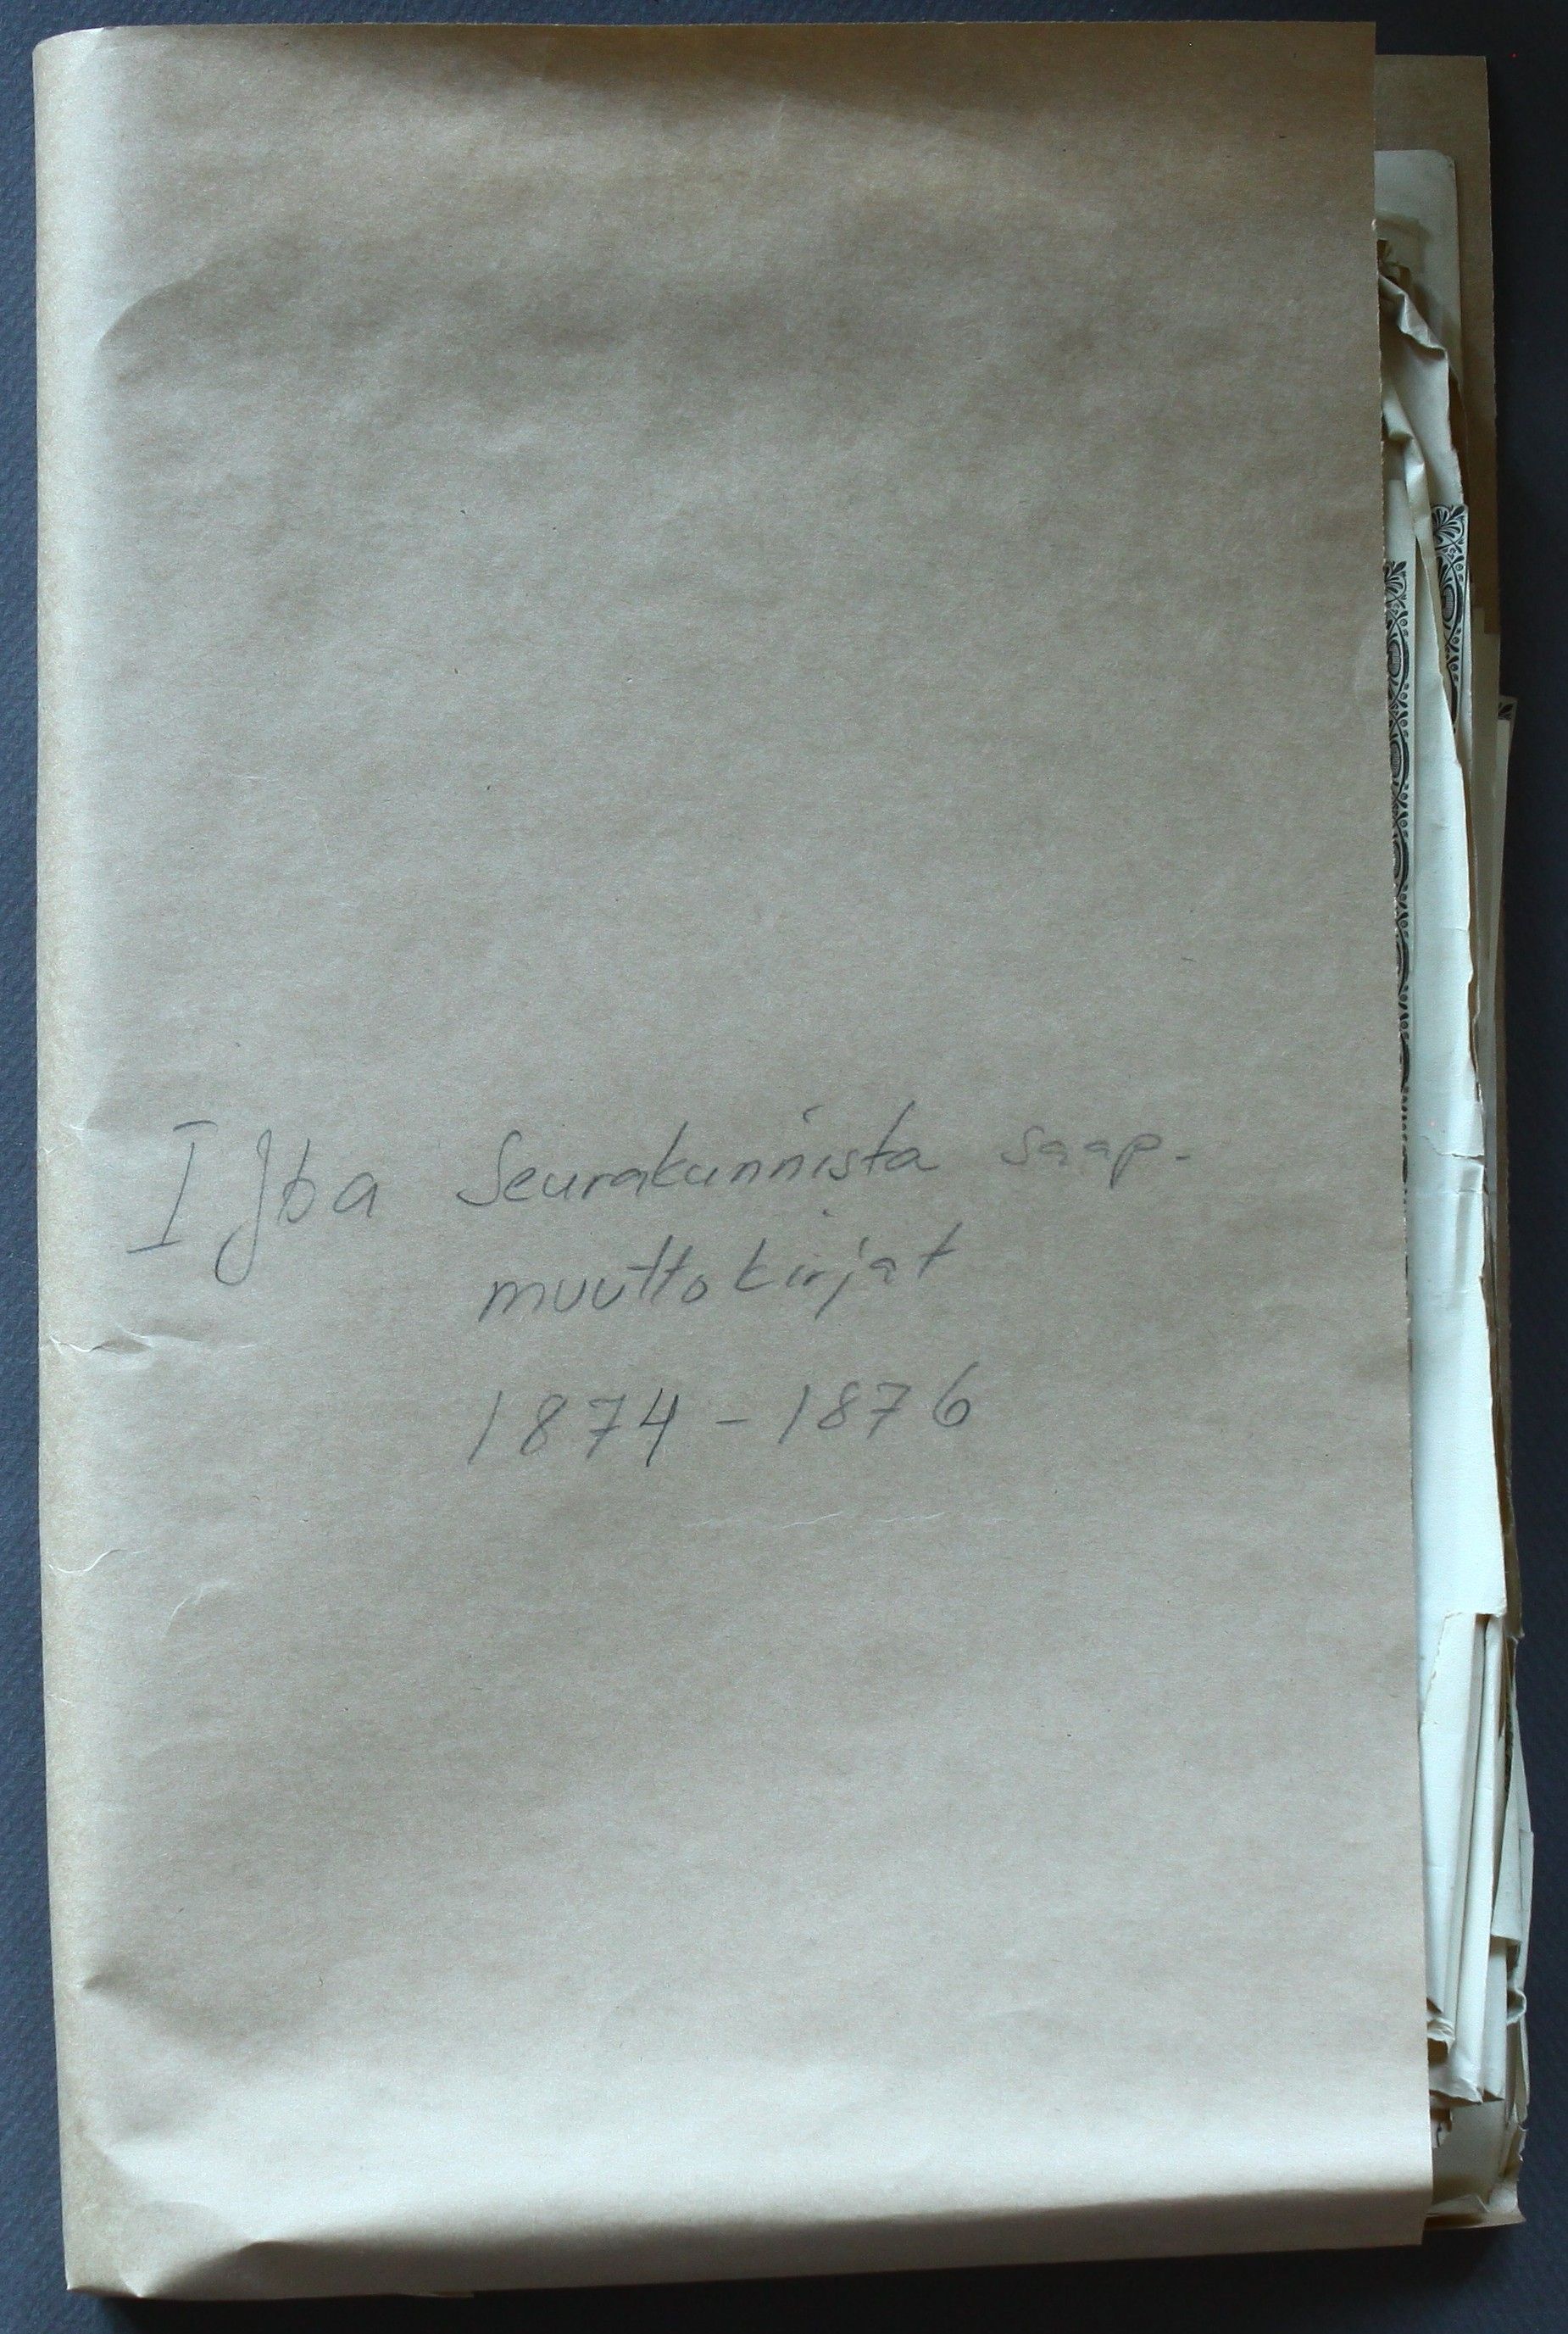 I Jba Seurakunnista saap.
muuttokirjat
1874 - 1876